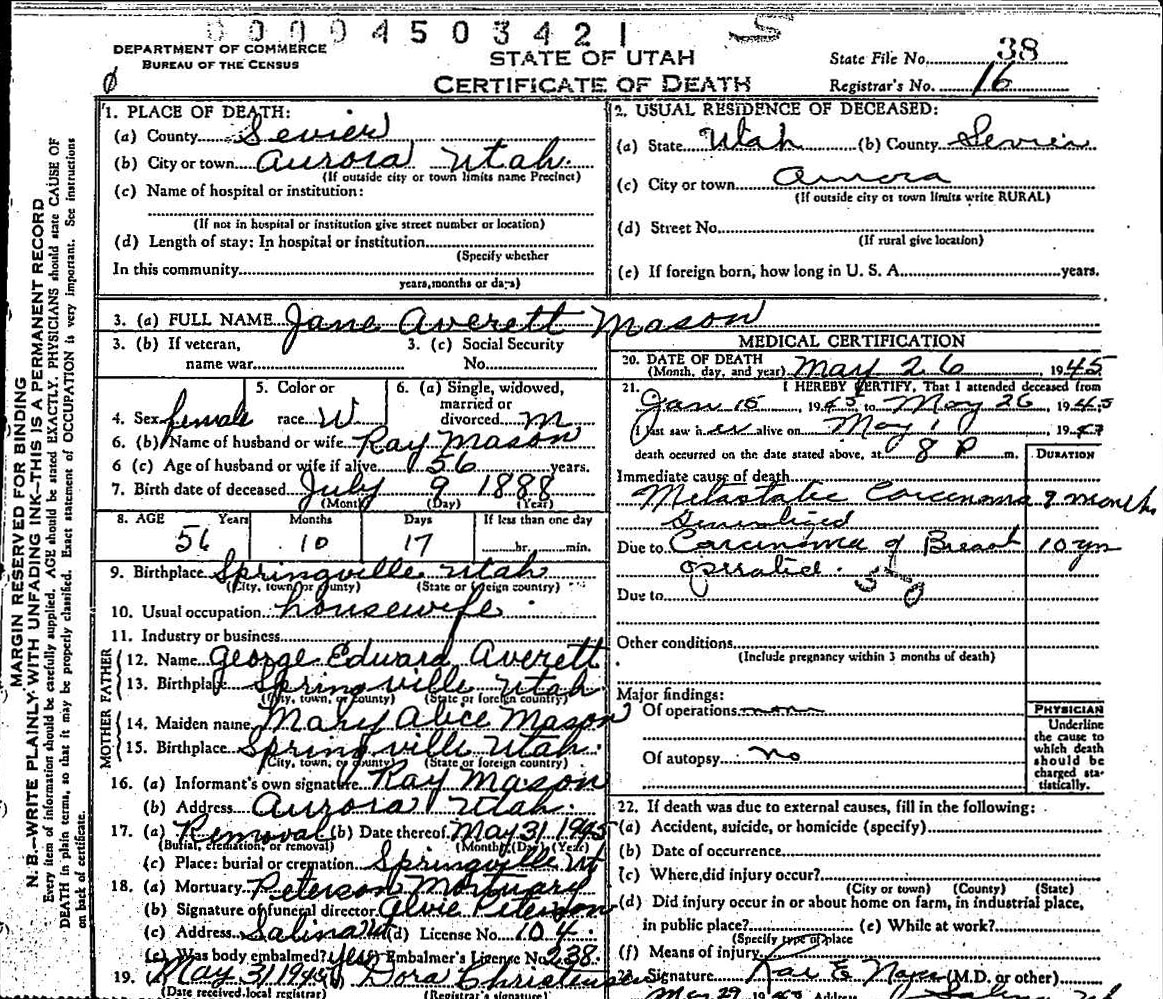 0 0 0 0 4 5 0 3 4 2 1 S
DEPARTMENT OF COMMERCE
BUREAU OF THE CENSUS
STATE OF UTAH
CERTIFICATE OF DEATH
State File No. 38
Registrar's No. 16
MARGIN RESERVED FOR BINDING
N. B.—WRITE PLAINLY WITH UNFADING INK—THIS IS A PERMANENT RECORD
Every item of information should be carefully supplied. AGE should be stated EXACTLY. PHYSICIANS should state CAUSE OF
DEATH in plain terms, so that it may be properly classified. Exact statement of OCCUPATION is very important. See instructions
on back of certificate.
1. PLACE OF DEATH:
(a) County Sevier
(b) City or town Aurora Utah.
(If outside city or town limits name Precinct)
(c) Name of hospital or institution:
(If not in hospital or institution give street number or location)
(d) Length of stay: In hospital or institution
(Specify whether
In this community
years, months or days)
2. USUAL RESIDENCE OF DECEASED:
(a) State Utah (b) County Sevier
(c) City or town Aurora
(If outside city or town limits write RURAL)
(d) Street No.
(If rural give location)
(e) If foreign born, how long in U. S. A. years.
3. (a) FULL NAME Jane Averett Mason
3. (b) If veteran,
name war
3. (c) Social Security
No.
4. Sex female
5. Color or
race W
6. (a) Single, widowed,
married or
divorced M
6. (b) Name of husband or wife Ray Mason
6 (c) Age of husband or wife if alive 56 years.
7. Birth date of deceased July 9 1888
(Month) (Day) (Year)
8. AGE Years Months Days If less than one day
56 10 17 hr. min.
9. Birthplace Springville Utah
(City, town, or county) (State or foreign country)
10. Usual occupation housewife
11. Industry or business
FATHER
12. Name George Edward Averett
13. Birthplace Springville Utah.
(City, town, or county) (State or foreign country)
MOTHER
14. Maiden name Mary Alice Mason
15. Birthplace Springville Utah.
(City, town, or county) (State or foreign country)
16. (a) Informant's own signature Ray Mason
(b) Address Aurora Utah.
17. (a) Removal (b) Date thereof May 31 1945
(Burial, cremation, or removal) (Month) (Day) (Year)
(c) Place: burial or cremation Springville Ut
18. (a) Mortuary Peterson Mortuary
(b) Signature of funeral director Alvie Peterson
(c) Address Salina Ut (d) License No. 104
(e) Was body embalmed? Yes Embalmer's License No. 238
19. May 31 1945 Dora Christensen
(Date received local registrar) (Registrar's signature)
MEDICAL CERTIFICATION
20. DATE OF DEATH
(Month, day, and year) May 26, 1945
21. I HEREBY CERTIFY, That I attended deceased from
Jan 15, 1945 to May 26, 1945
I last saw her alive on May 1, 19
death occurred on the date stated above, at 8 P m.
DURATION
Immediate cause of death
Metastatic Carcinoma 9 months
Generalized
Due to Carcinoma of Breast 10 yrs
operated. 50
Due to
Other conditions
(Include pregnancy within 3 months of death)
Major findings:
Of operations none
Of autopsy no
PHYSICIAN
Underline
the cause to
which death
should be
charged sta-
tistically.
22. If death was due to external causes, fill in the following:
(a) Accident, suicide, or homicide (specify)
(b) Date of occurrence
(c) Where did injury occur?
(City or town) (County) (State)
(d) Did injury occur in or about home on farm, in industrial place,
in public place? (e) While at work?
(Specify type of place
(f) Means of injury
Signature Rae E Noyes (M.D. or other)
May 29 1945 Address Salina